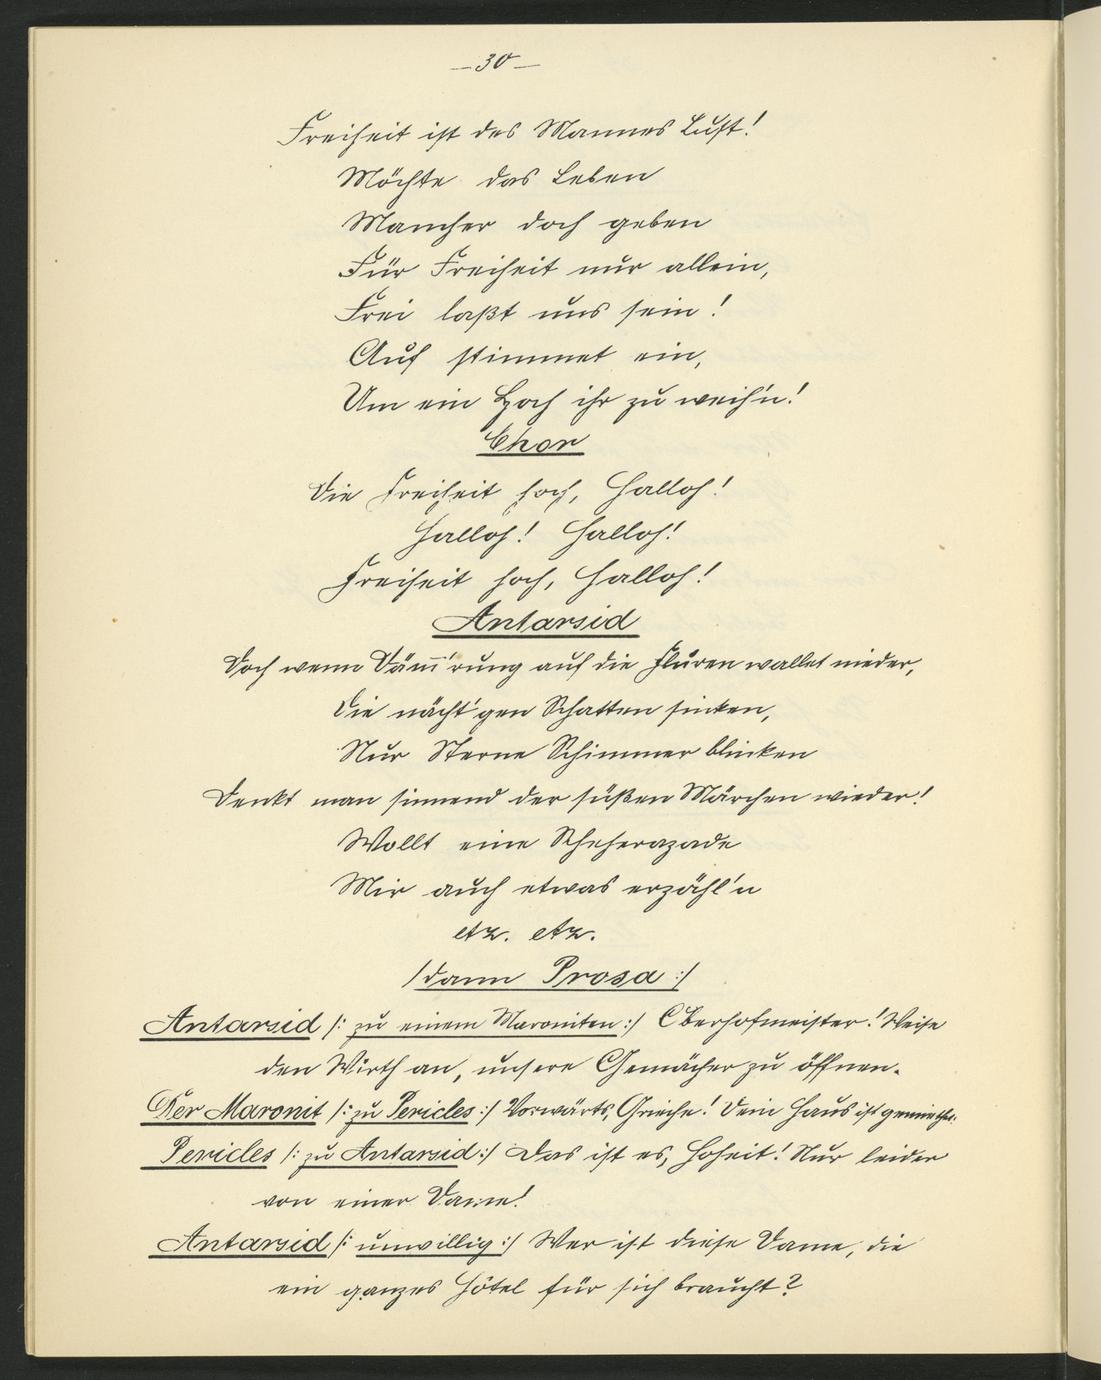 — 30 —
Freiheit ist des Mannes Lust!
Möchte das Leben
Mancher doch geben
Für Freiheit nur allein,
Frei laßt uns sein!
Auf stimmet ein,
Um ein Hoch ihr zu weih'n!
Chor
Die Freiheit hoch, Halloh!
Halloh! Halloh!
Freiheit hoch, Halloh!
Antarsid
Doch wenn Däm̄'rung auf die Fluren wallet nieder,
Die nächt'gen Schatten sinken,
Nur Sterne Schimmer blinken
Denkt man sinnend der süßen Märchen wieder!
Wollt eine Scheherazade
Mir auch etwas erzähl'n
etz. etz.
/dann Prosa:/
Antarsid /: zu einem Maroniten:/ Oberhofmeister! Weise
den Wirth an, unsere Gemächer zu öffnen.
Der Maronit /: zu Pericles:/ Vorwärts, Grieche! Dein Haus ist gemiethet.
Pericles /: zu Antarsid:/ Das ist es, Hoheit! Nur leider
von einer Dame!
Antarsid /: unwillig:/ Wer ist diese Dame, die
ein ganzes Hôtel für sich braucht?